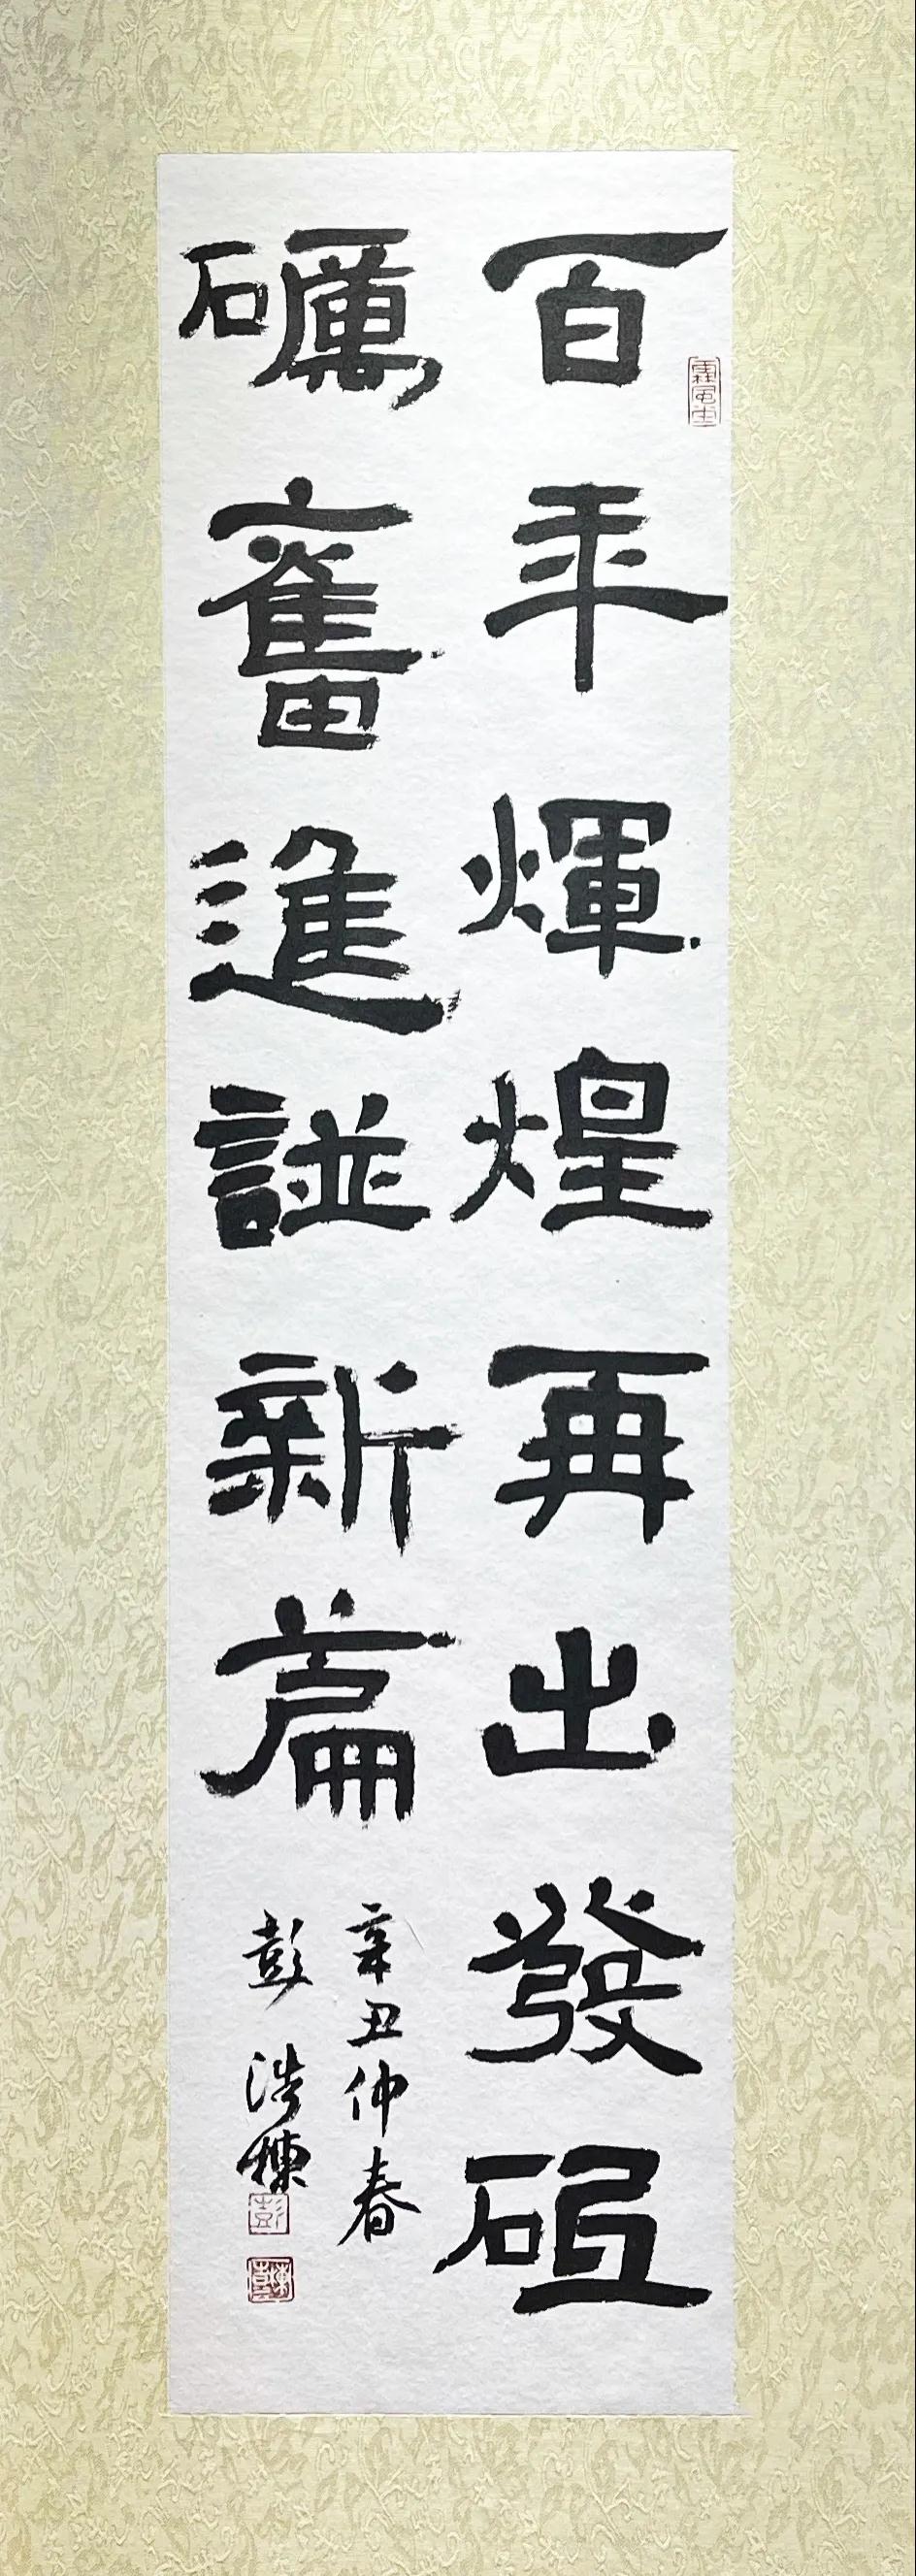 百年煇煌再出發砥
礪奮進譜新篇
辛丑仲春
彭浩棟
彭